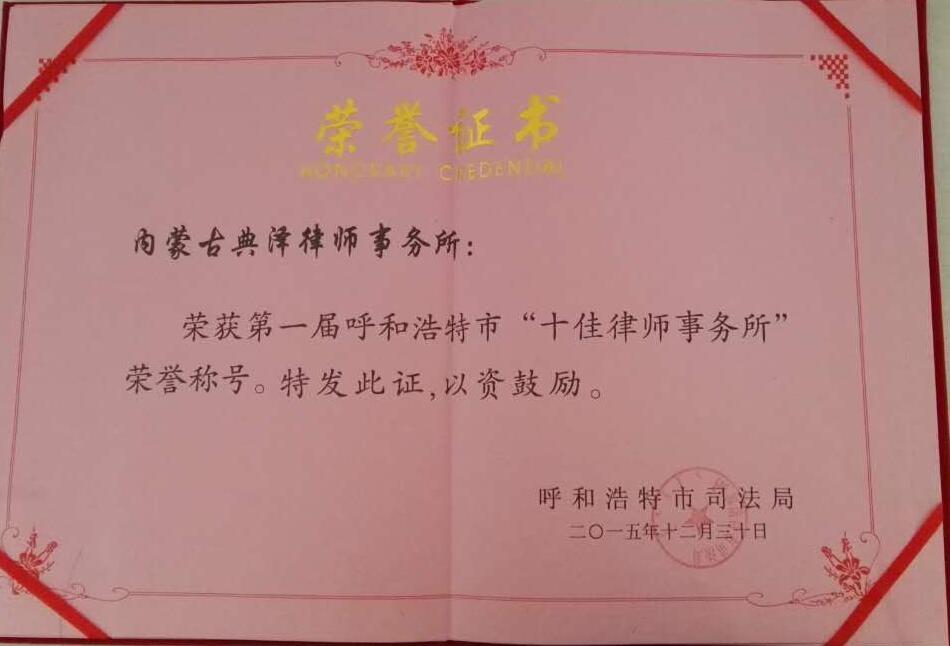 荣誉证书
HONORARY CREDENTIAL
内蒙古典泽律师事务所：
荣获第一届呼和浩特市“十佳律师事务所”
荣誉称号。特发此证,以资鼓励。
呼和浩特市司法局
二〇一五年十二月三十日